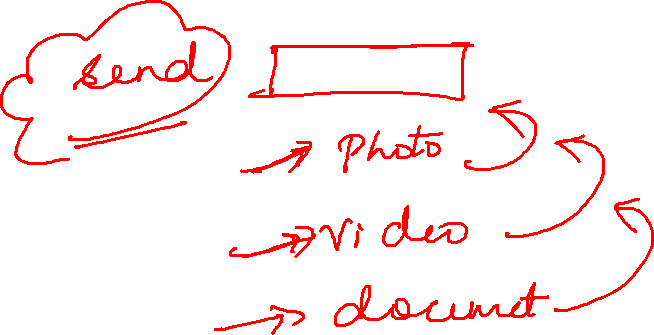 send
Photo
Video
documet